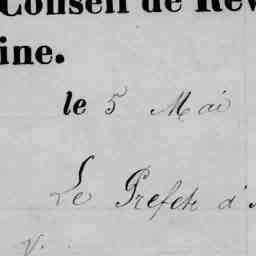 Conseil de Rev
ine.
le 5 Mai
Le Préfet d'